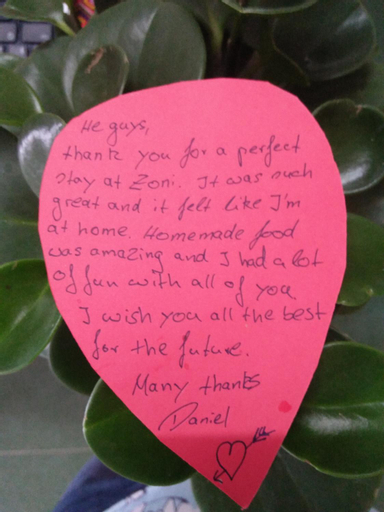 He guys,
thank you for a perfect
stay at Zoni. It was such
great and it felt like I'm
at home. Homemade food
was amazing and I had a lot
of fun with all of you
I wish you all the best
for the future.
Many thanks
Daniel